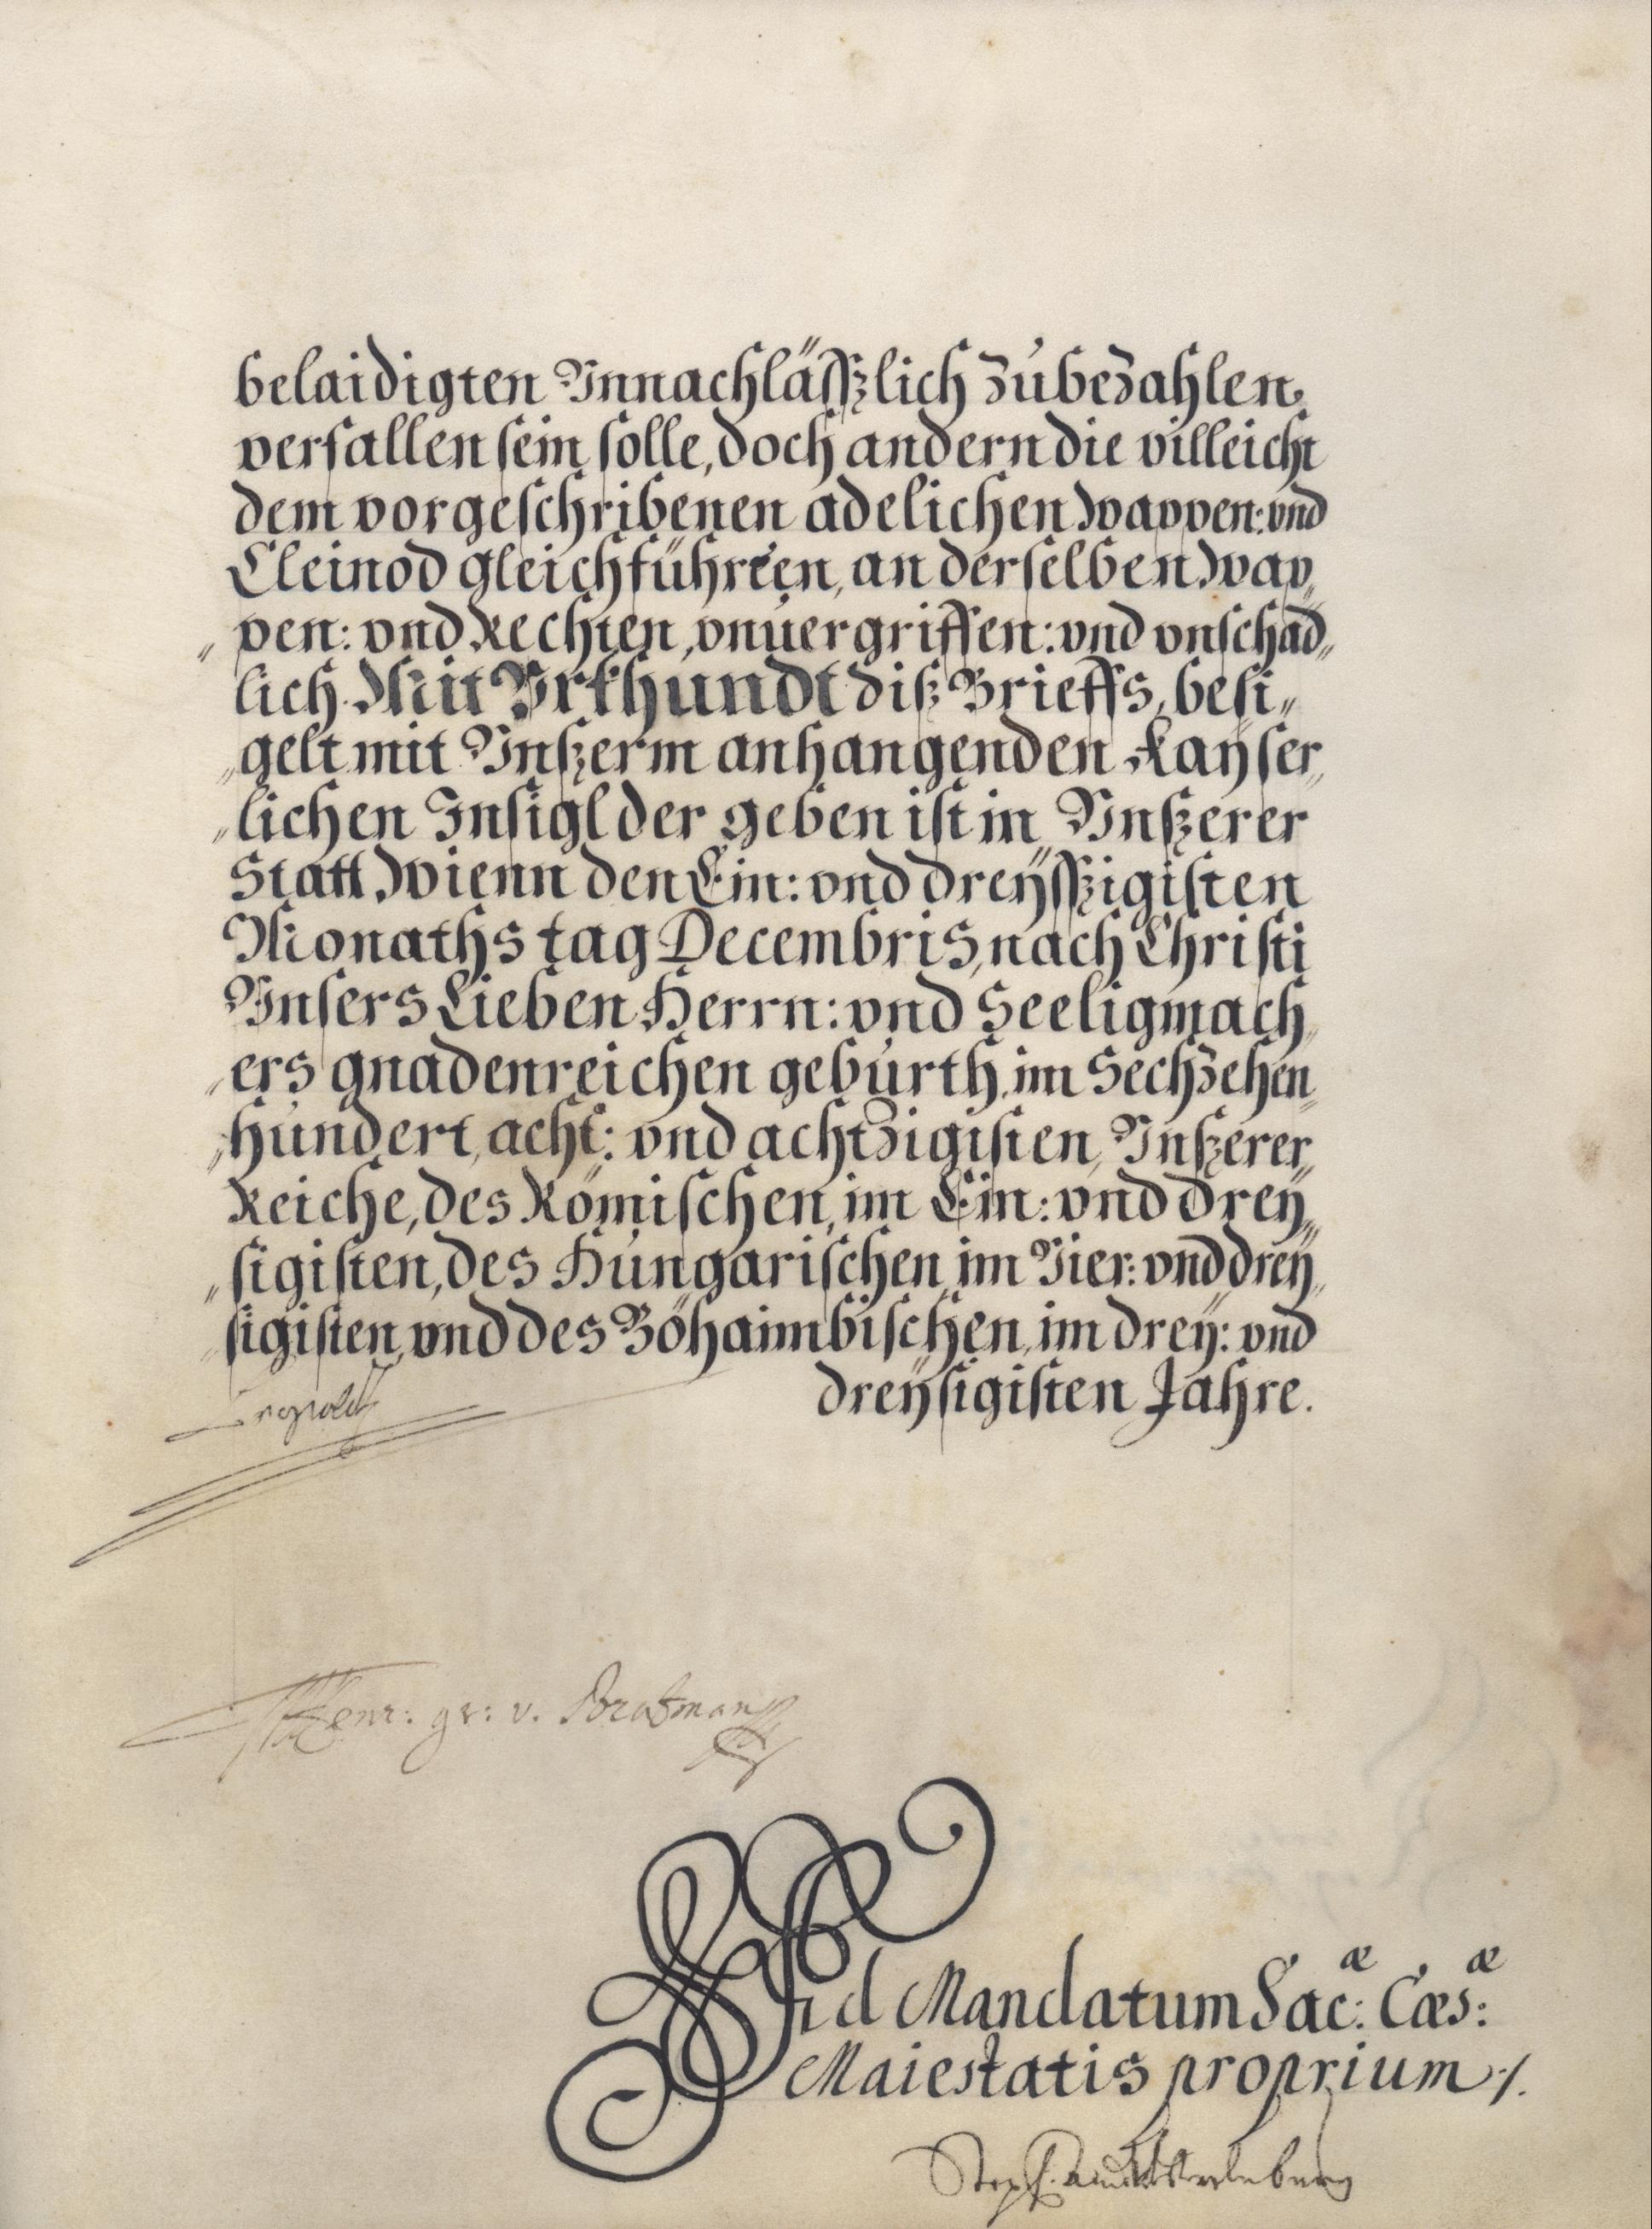 belaidigten Vnnachläſſzlich zúbezahlen
verfallen ſein ſolle, doch andern die villeicht
dem vorgeſchribenen adelichen Wappen: vnd
Cleinod gleichführten, an derſelben Wap„
„pen: vnd Rechten, vnúergriffen: vnd vnſchäd„
lich. Mit Vrkhundt diſz Brieffs, beſi„
„gelt mit Vnſzerm anhangenden Kayſer„
„lichen Inſigl der geben iſt in Vnſzerer
Statt Wienn den Ein: vnd dreÿſſzigiſten
Monaths tag Decembris, nach Chriſti
Vnſers Lieben Herrn: vnd Seeligmach„
„ers gnadenreichen gebúrth, im Sechzehen„
„húndert, acht: vnd achtzigiſten, Vnſzerer„
Reiche, des Römiſchen, im Ein: vnd dreÿ„
„ſigiſten, des Húngariſchen, im Vier: vnd dreÿ„
„ſigiſten, vnd des Böhaimbiſchen, im dreÿ: vnd
dreÿſigiſten Jahre.
Leopold
Henr: gr: v. Stratman
Ad Mandatum Sac:æ Cæs:æ
Maiestatis proprium ·/.